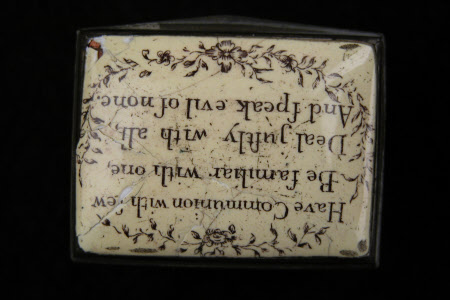 Have Communion with few
Be familiar with one,
Deal juſtly with all,
And ſpeak evil of none.